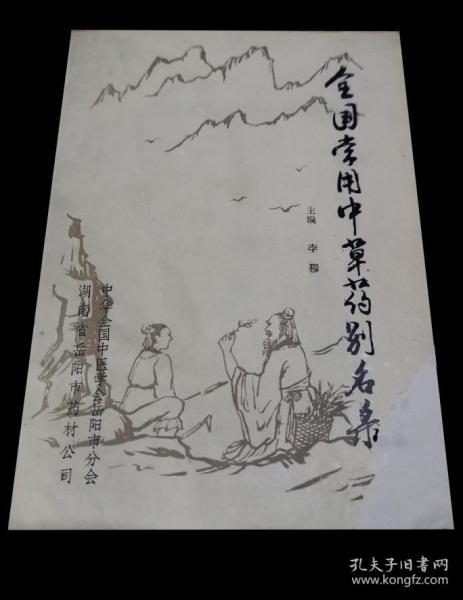 全国常用中草药别名集
主编 李穆
中华全国中医学会岳阳市分会
湖南省岳阳市药材公司
孔夫子旧书网
www.kongfz.com